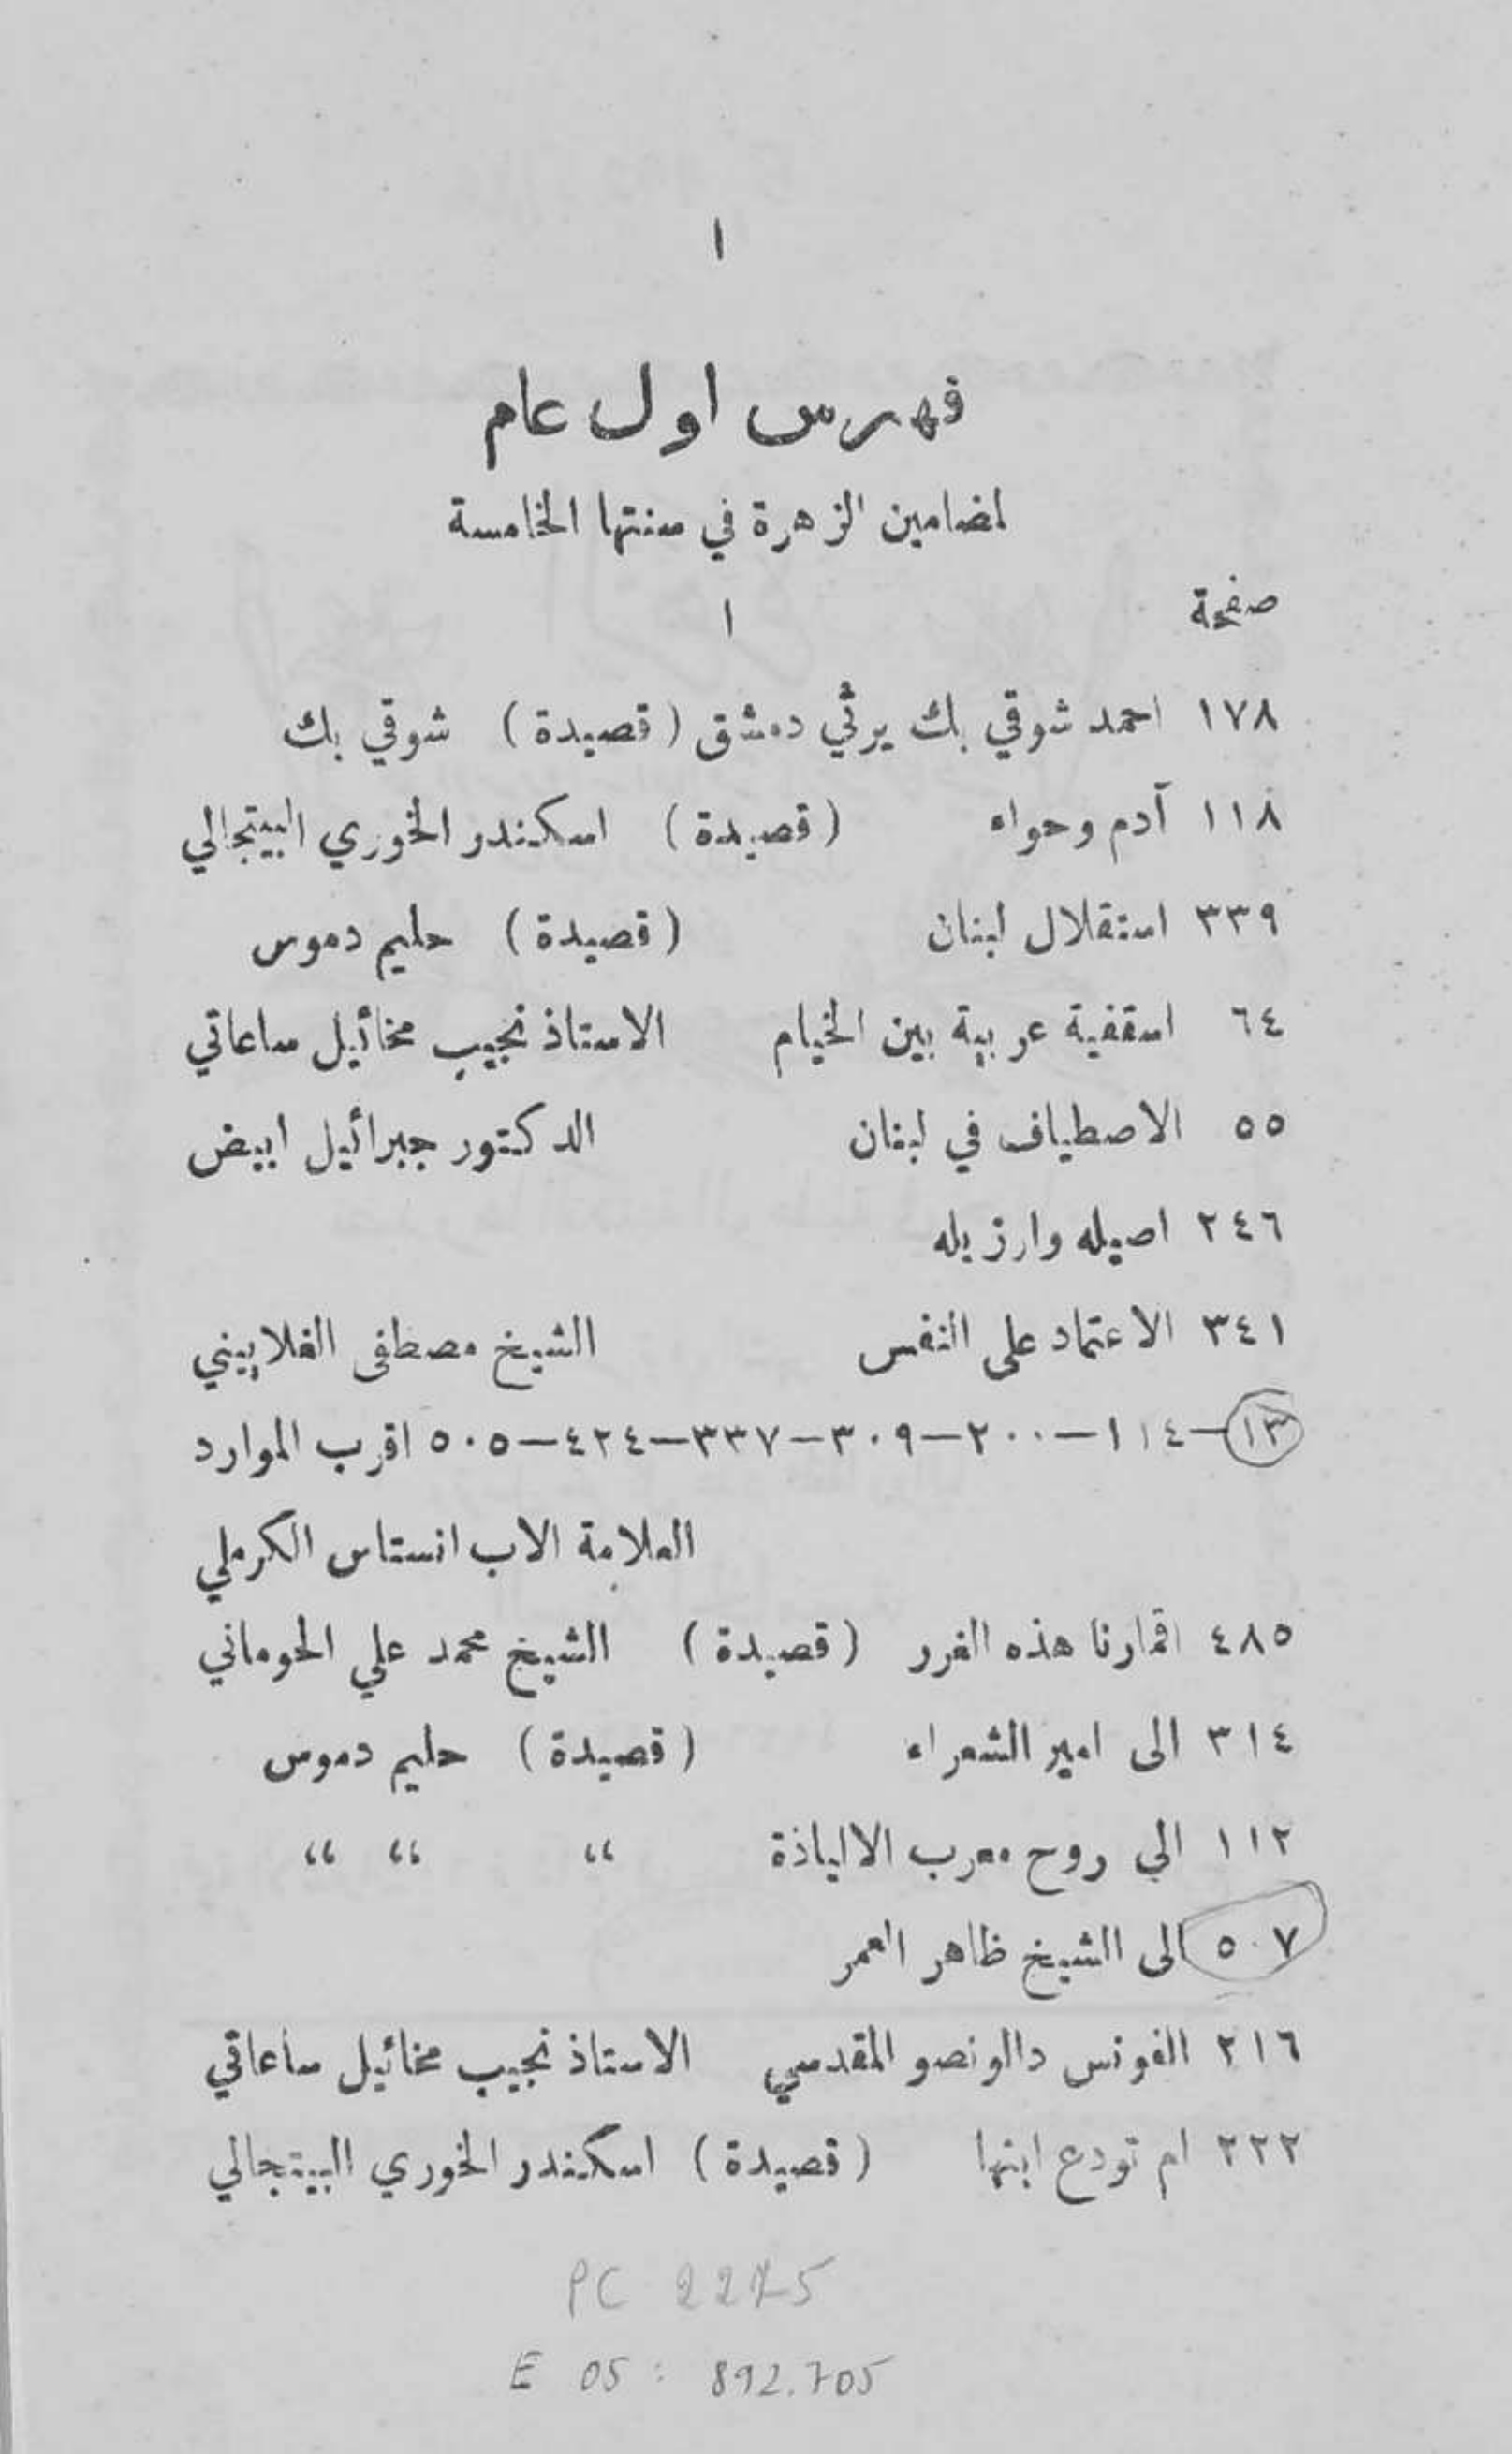 ١
فهرس اول عام
لمضامين الزهرة في سنتها الخامسة
صفحة
ا
١٧٨ احمد شوقي بك يرثي دمشق (قصيدة) شوقي بك
١١٨ آدم وحواء (قصيدة) اسكندر الخوري البيتجالي
٣٣٩ استقلال لبنان (قصيدة) حليم دموس
٦٤ اسقفية عربية بين الخيام الاستاذ نجيب مخائيل ساعاتي
٥٥ الاصطياف في لبنان الدكتور جبرائيل ابيض
٢٤٦ اصيله وارزيله
٣٤١ الاعتماد على النفس الشيخ مصطفى الغلاييني
١٣–١١٤–٢٠٠–٣٠٩–٣٣٧–٤٢٤–٥٠٥ اقرب الموارد
العلامة الاب انستاس الكرملي
٤٨٥ اقمارنا هذه الغرر (قصيدة) الشيخ محمد علي الحوماني
٣١٤ الى امير الشعراء (قصيدة) حليم دموس
١١٢ الي روح معرب الالياذة “ “ “
٥٠٧ الى الشيخ ظاهر العمر
٢١٦ الفونس دالونصو المقدسي الاستاذ نجيب مخائيل ساعاتي
٢٢٢ ام تودع ابنها (قصيدة) اسكندر الخوري البيتجالي
PC 2275
E 05 : 892.705